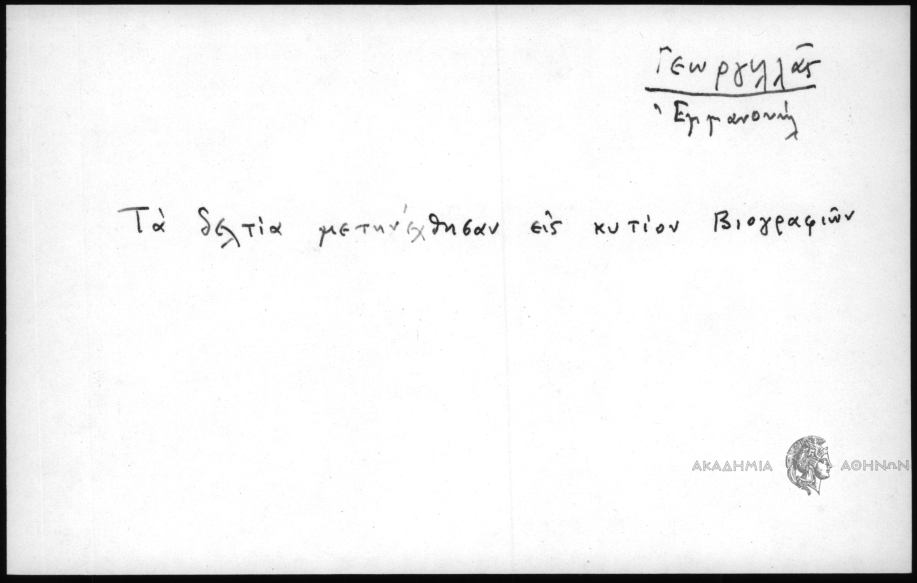 Γεωργιλλᾶς
Ἐμμανουήλ
Τὰ δελτία μετηνέχθησαν εἰς κυτίον Βιογραφιῶν
ΑΚΑΔΗΜΙΑ ΑΘΗΝΩΝ